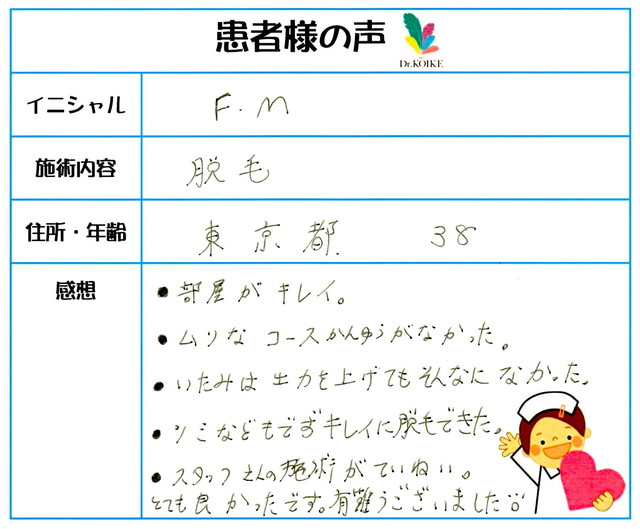 患者様の声
Dr.KOIKE
イニシャル F.M
施術内容 脱毛
住所・年齢 東京都 38
感想
・部屋がキレイ。
・ムリなコースかんゆうがなかった。
・いたみは出力を上げてもそんなになかった。
・シミなどもでずキレイに脱毛できた。
・スタッフさんの施術がていねい。
とても良かったです。有難うございました